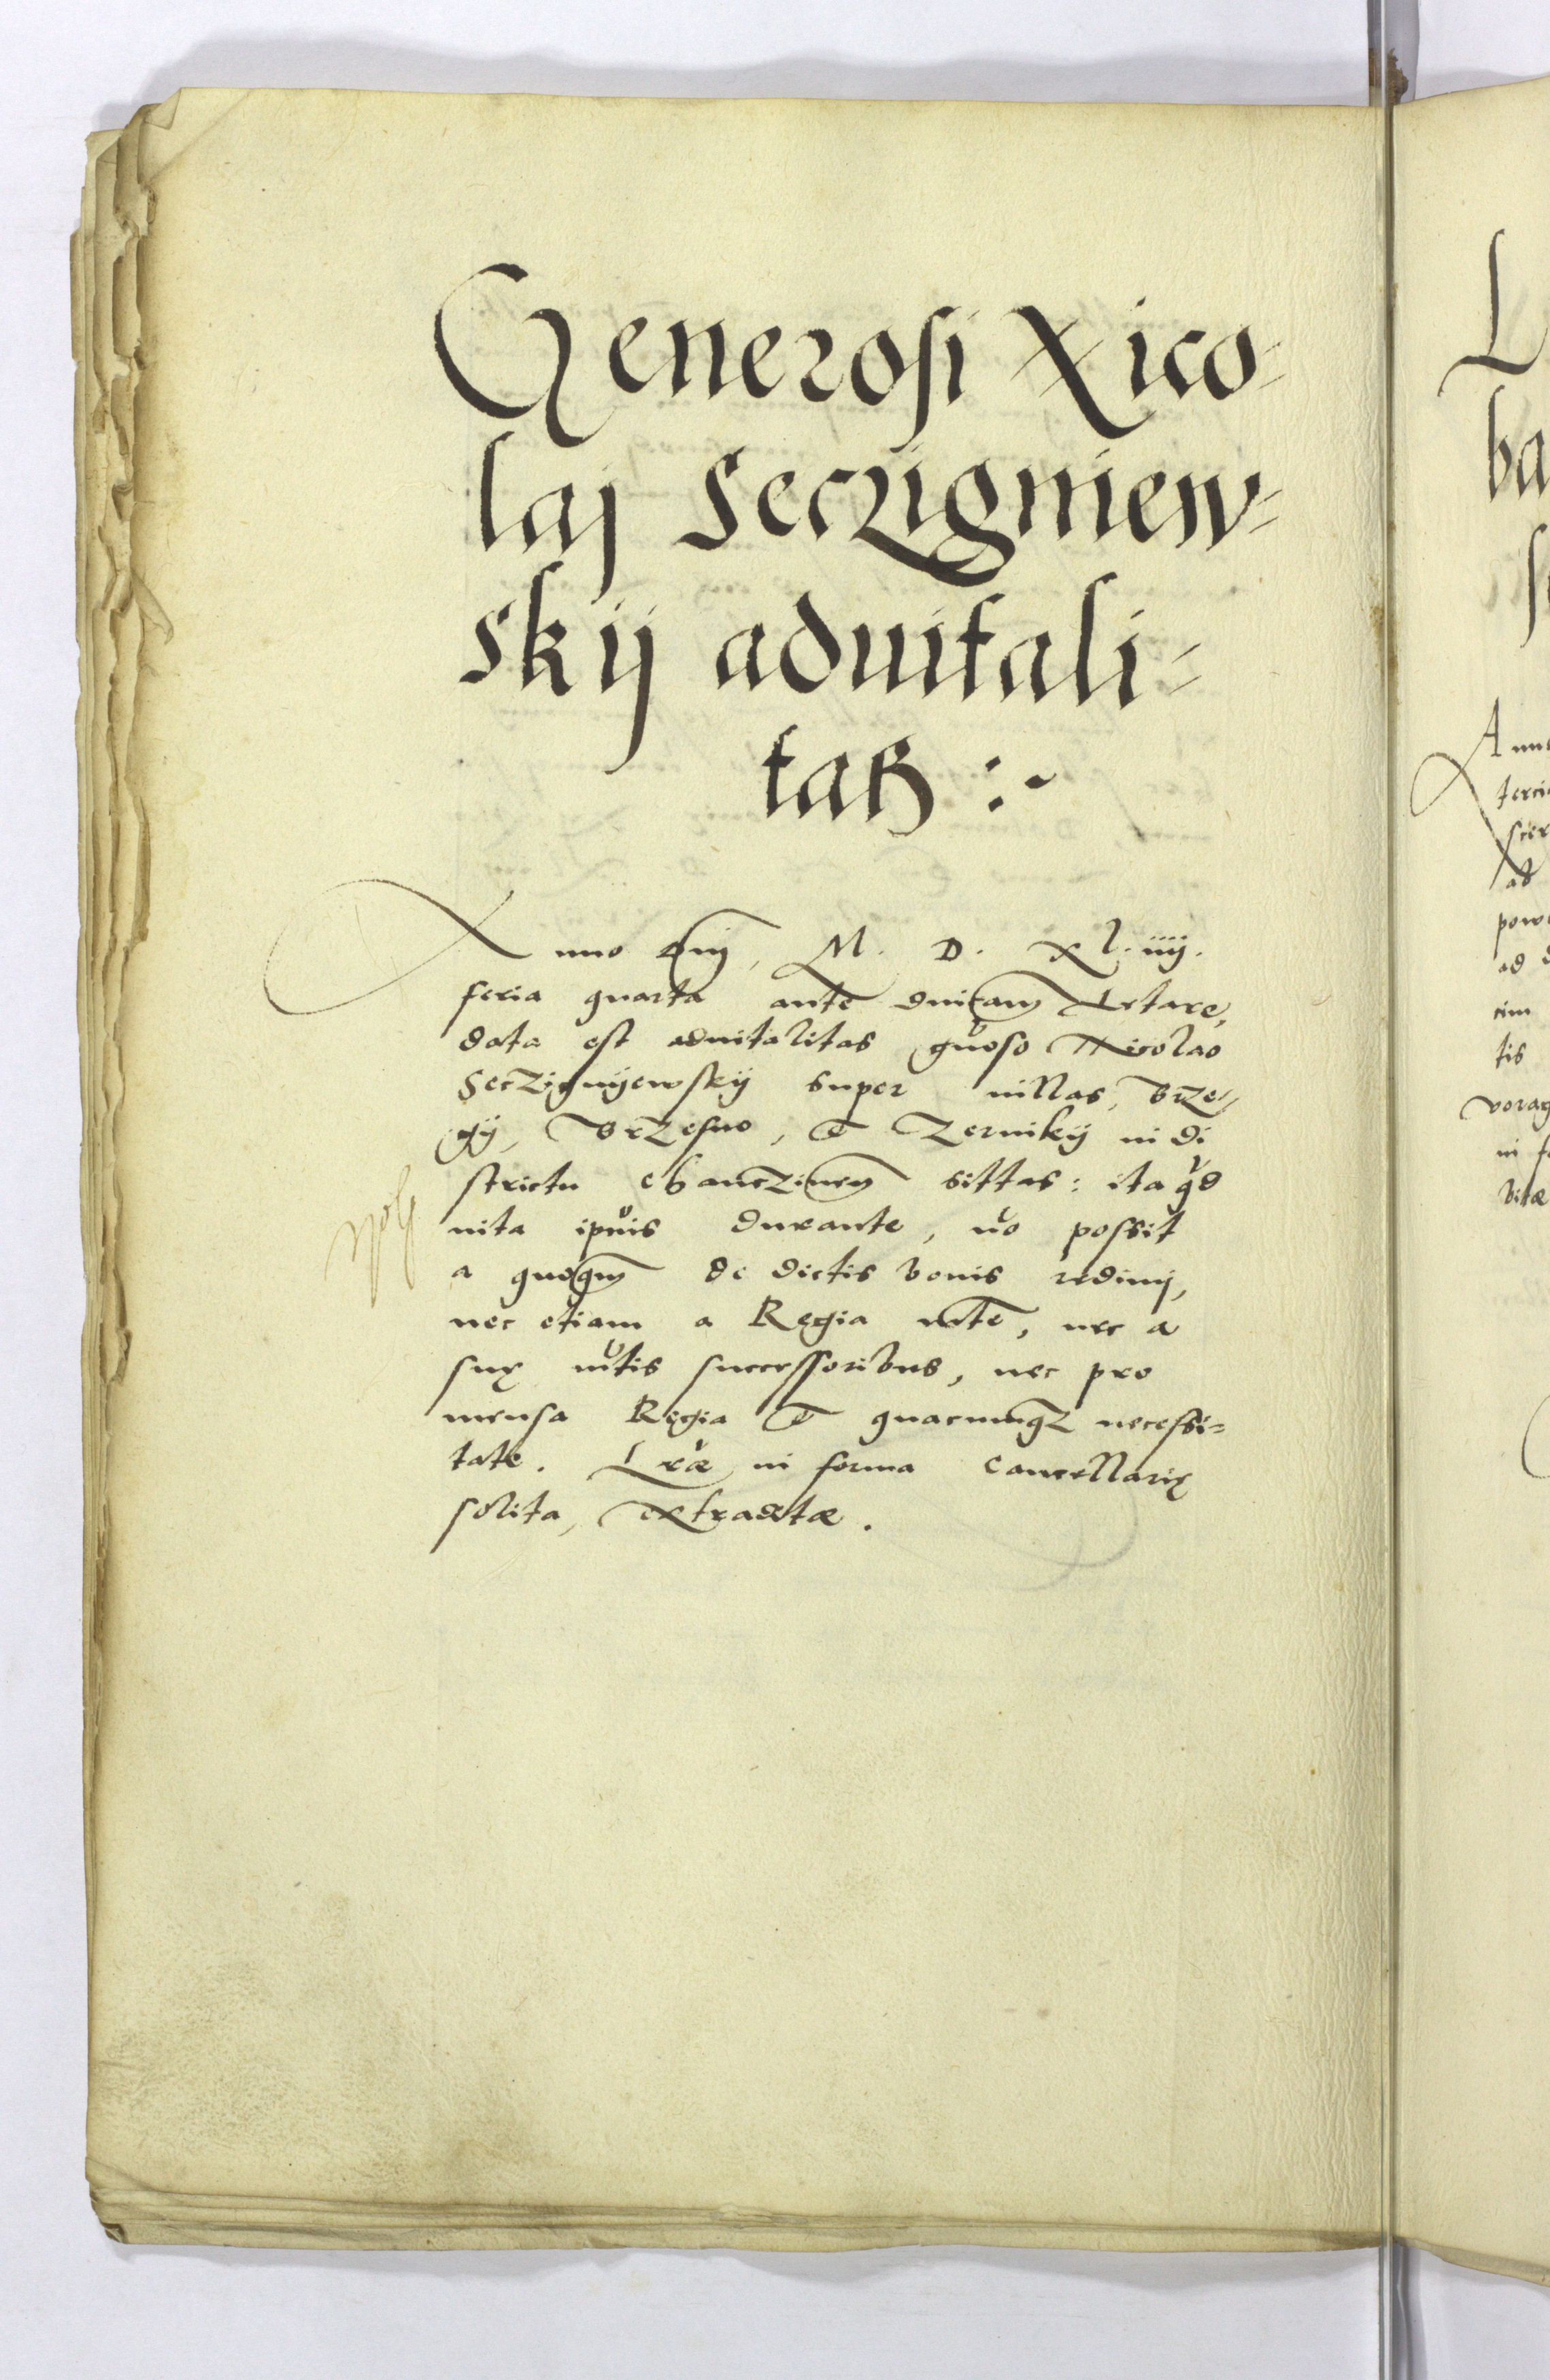 Generosi Nico-
laj Seczigniew-
skij aduitali-
tas :~
Anno dnj, M. D. Xl. iiij.
feria quarta ante dnicam Letare,
data est aduitalitas gnoso Nicolao
Seczignijewskij super uillas, Brze-
gij, Brzesno, et Zernikij in di
strictu Chanczinen sittas: ita qd
uita ipius durante, no possit
a quoqm de dictis bonis redimj,
nec etiam a Regia mte, nec a
suę mtis successoribus, nec pro
mensa Regia et quacumqz necessi-
tate. Lræ in forma Cancellarię
solita, extraditæ.
L
ba
Anno
terci
ab
powi
ad d
cim
tis
vorag
in fo
vitæ